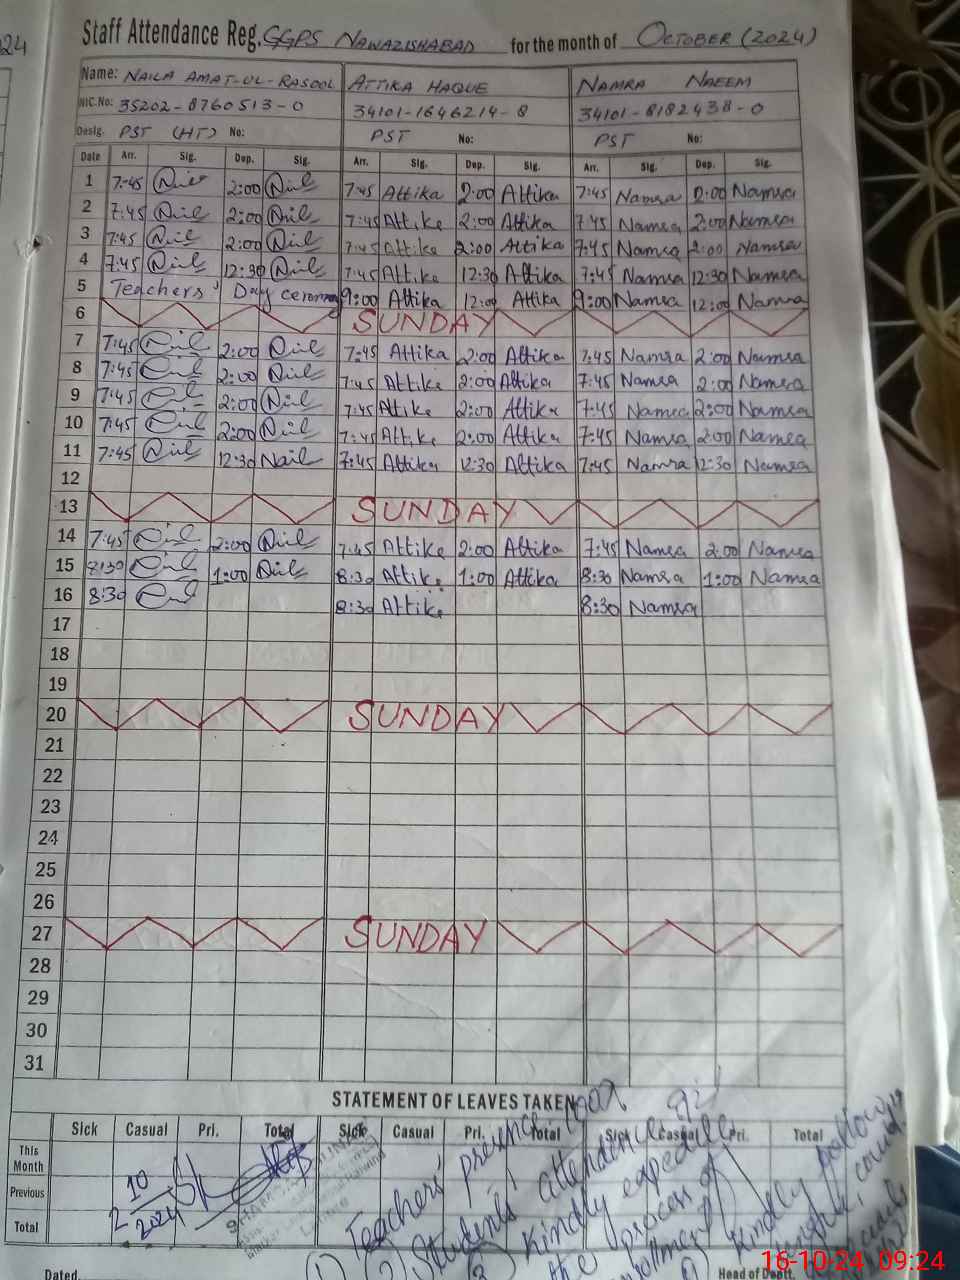 24
Staff Attendance Reg. GGPS NAWAZISHABAD for the month of OCTOBER (2024)
Name: NAILA AMAT-UL-RASOOL ATTIKA HAQUE NAMRA NAEEM
NIC.No: 35202-8760513-0 34101-1646214-8 34101-8182438-0
Desig. PST (HT) No: PST No: PST No:
Date Arr. Sig. Dep. Sig. Arr. Sig. Dep. Sig. Arr. Sig. Dep. Sig.
1 7:45 2:00 7:45 Attika 2:00 Attika 7:45 Namra 2:00 Namra
2 7:45 2:00 7:45 Attika 2:00 Attika 7:45 Namra 2:00 Namra
3 7:45 2:00 7:45 Attika 2:00 Attika 7:45 Namra 2:00 Namra
4 7:45 12:30 7:45 Attika 12:30 Attika 7:45 Namra 12:30 Namra
5 Teachers' Day ceremony 9:00 Attika 12:00 Attika 9:00 Namra 12:00 Namra
6 SUNDAY
7 7:45 2:00 7:45 Attika 2:00 Attika 7:45 Namra 2:00 Namra
8 7:45 2:00 7:45 Attika 2:00 Attika 7:45 Namra 2:00 Namra
9 7:45 2:00 7:45 Attika 2:00 Attika 7:45 Namra 2:00 Namra
10 7:45 2:00 7:45 Attika 2:00 Attika 7:45 Namra 2:00 Namra
11 7:45 12:30 7:45 Attika 12:30 Attika 7:45 Namra 12:30 Namra
12
13 SUNDAY
14 7:45 2:00 7:45 Attika 2:00 Attika 7:45 Namra 2:00 Namra
15 1:00 8:30 Attika 1:00 Attika 8:30 Namra 1:00 Namra
16 8:30 8:30 Attika 8:30 Namra
17
18
19
20 SUNDAY
21
22
23
24
25
26
27 SUNDAY
28
29
30
31
STATEMENT OF LEAVES TAKEN
Sick Casual Pri. Total Sick Casual Pri. Total Sick Casual Pri. Total
This Month
Previous
Total
2 10 2024
1) Teachers' presence
2) Students' attendance
3 Kindly expedite
the process of
enrollment
Kindly follow
Dated. Head of Deptt.
16-10-24 09:24